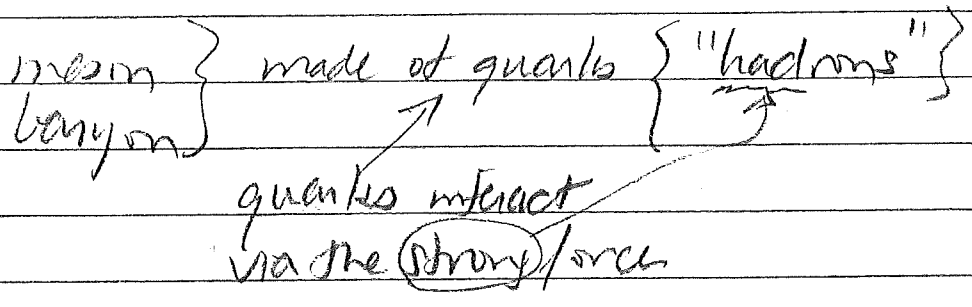 meson } made of quarks { "hadrons" }
baryon
quarks interact
via the strong force